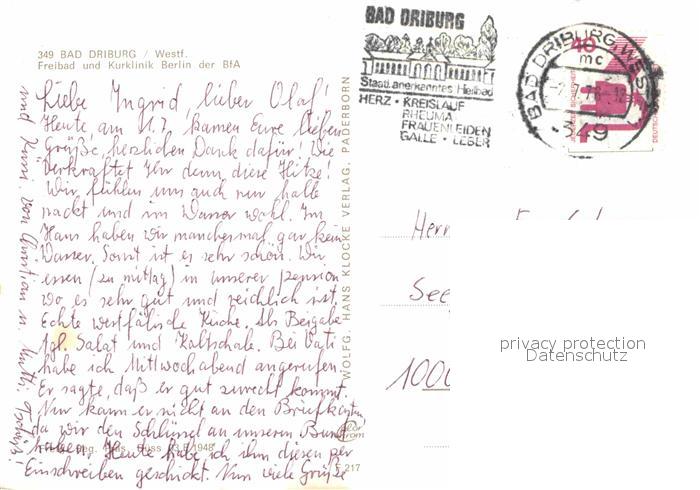 349 BAD DRIBURG / Westf.
Freibad und Kurklinik Berlin der BfA
Liebe Ingrid, lieber Olaf!
Heute, am 11.7. kamen Eure lieben
Grüße, herzlichen Dank dafür! Wie
verkraftet Ihr denn diese Hitze!
Wir fühlen uns auch nur halb
nackt und im Wasser wohl. Im
Haus haben wir manchesmal gar kein
Wasser. Sonst ist es sehr schön. Wir
essen (zu mittag) in unserer Pension
wo es sehr gut und reichlich ist.
Echte westfälische Küche. Als Beigabe
tgl. Salat und Kaltschale. Bei Vati
habe ich Mittwochabend angerufen.
Er sagte, daß er gut zurecht kommt.
Nur kann er nicht an den Briefkasten
da wir den Schlüssel an unserem Bund
haben. Heute habe ich ihm diesen per
Einschreiben geschickt. Nun viele Grüße
und von Christian u. Mutti Tschüß!
WOLFG. HANS KLOCKE VERLAG, PADERBORN
F 217
BAD DRIBURG
Staatl. anerkanntes Heilbad
HERZ · KREISLAUF
RHEUMA
FRAUENLEIDEN
GALLE · LEBER
BAD DRIBURG, WESTF
mc
349
40
Herr
See
1000
privacy protection
Datenschutz